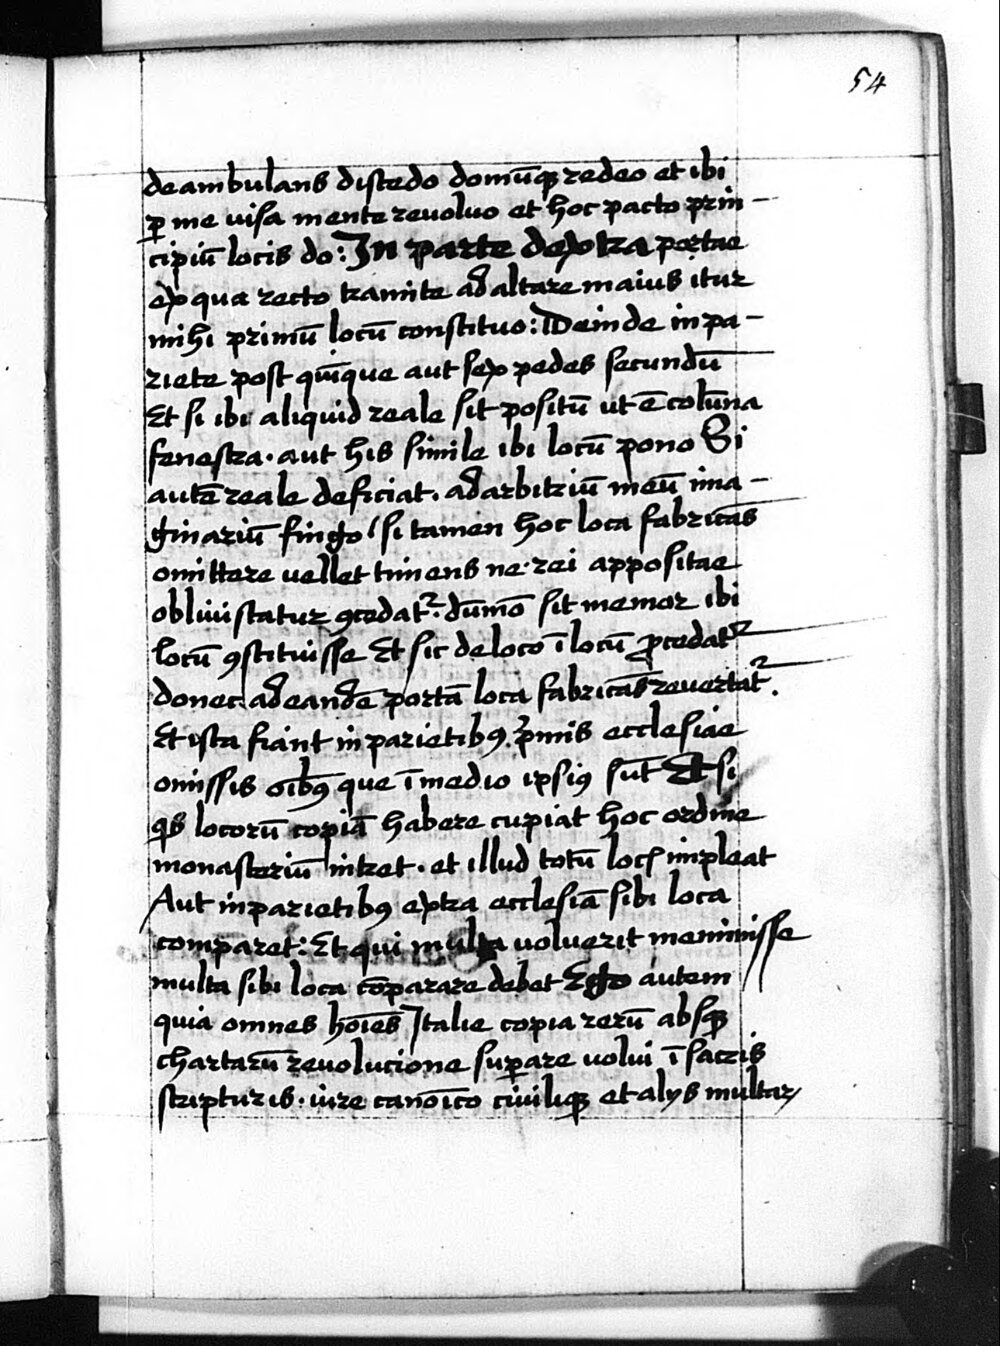 54
deambulans discedo domūqꝫ redeo et ibi
ꝑ me visa mente revoluo et hoc pacto prin-
cipiū locis do: In parte dextra portae
ex qua recto tramite ad altare maius itur
mihi primū locū constituo: Deinde in pa-
riete post quīque aut sex pedes secundū
Et si ibi aliquid reale sit positū ut ē colūna
fenestra. aut his simile ibi locū pono Si
autē reale deficiat. ad arbitriū meū ima-
ginariū fingo / si tamen hoc loca fabricās
omittere vellet timens ne rei appositae
obliviscatur ꝯcedatᷣ. dūmō sit memor ibi
locū ꝯstituisse Et sic de loco ī locū ꝓcedatᷣ
donec ad eandē portā loca fabricās revertatᷣ.
Et ista fiant in parietibꝰ p̄mis ecclesiae
omissis oībꝰ que ī medio ipsiꝰ sūt Et si
qͥs locorū copiā habere cupiat hoc ordine
monasteriū intret. et illud totū locꝭ impleat
Aut in parietibꝰ extra ecclesiā sibi loca
comparet: Et qui multa voluerit meminisse
multa sibi loca cōparare debet Ego autem
quia omnes hoīes Italie copia rerū absqꝫ
chartarū revolucione suꝑare volui ī sacris
scripturis. iure canōico civiliqꝫ et alys multaꝝ